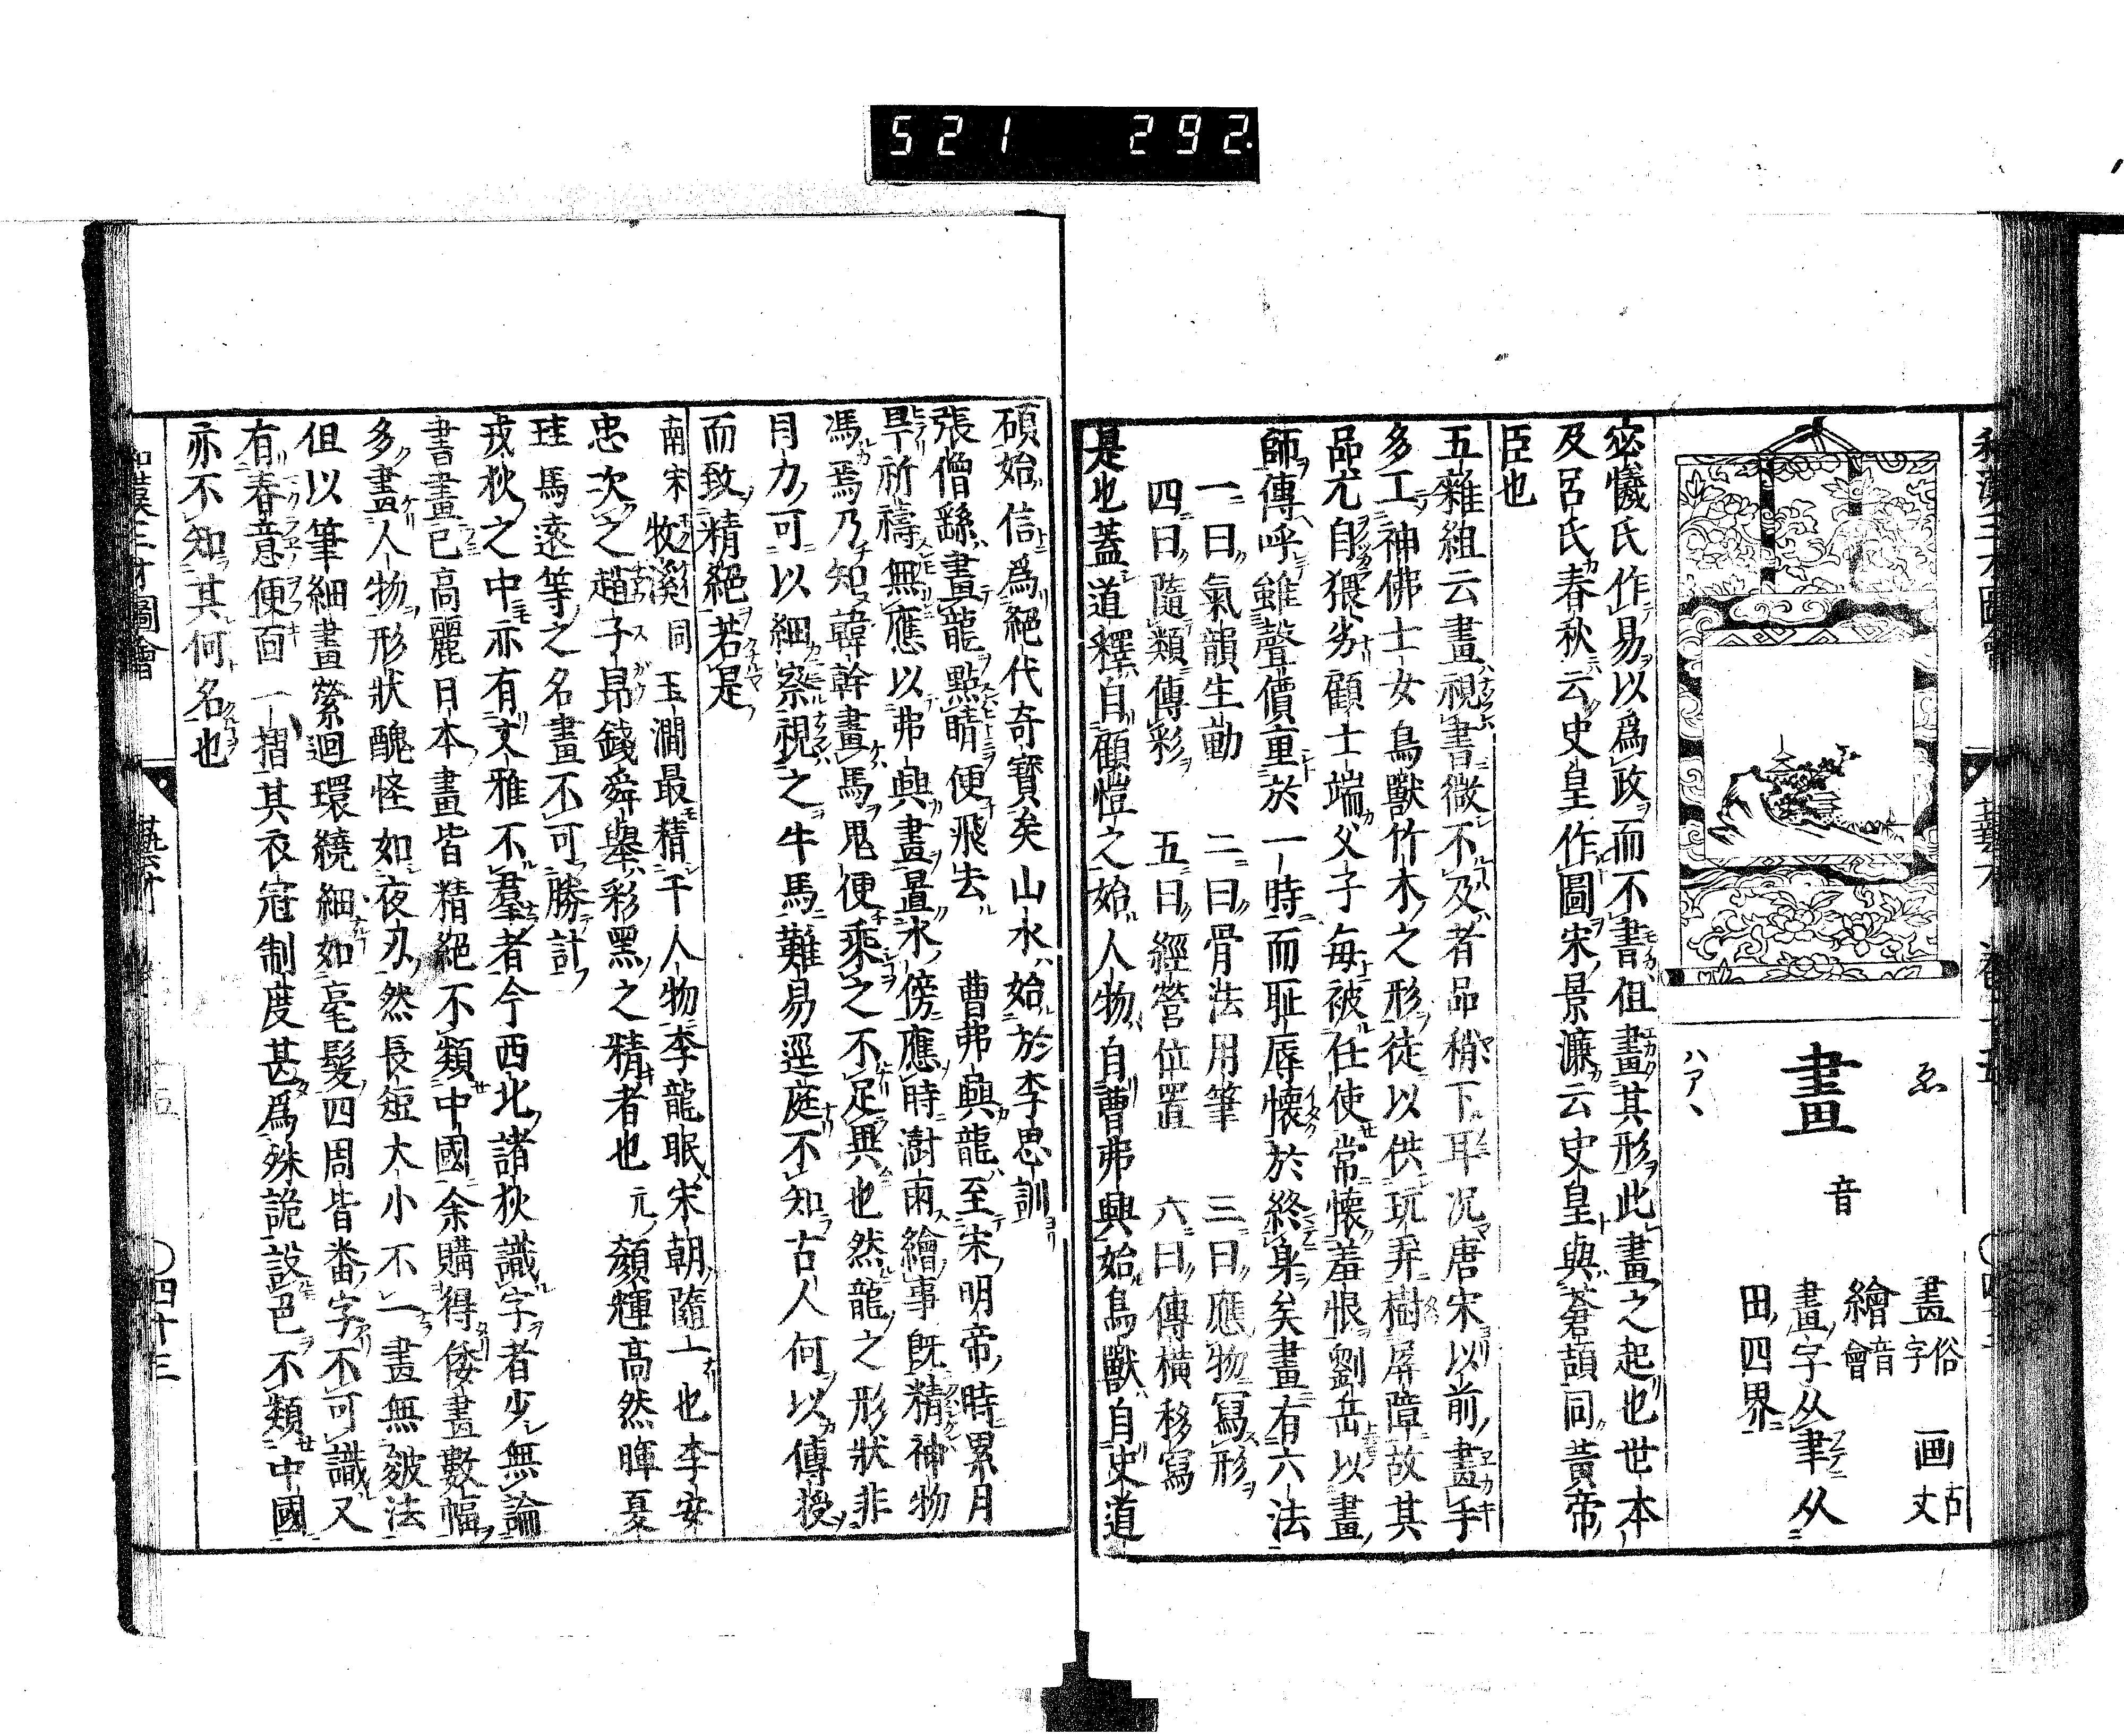 521 292.
和漢三才圖會
藝
畫
音
ゑ
ハアヽ
畫俗字 画古文
繪音會
畫字从聿从
田四界
宓犧氏作易以爲政而不書但畫其形此畫之起也世本
及呂氏春秋云史皇作圖宋景濂云史皇與蒼頡同黃帝
臣也
五雜組云畫視書微不及者品稍下耳况唐宋以前畫手
多工神佛士女鳥獸竹木之形徒以供玩弄樹屏障故其
品尤自猥劣顧士端父子每被任使常懷羞恨劉岳以畫
師傳呼雖聲價重於一時而耻辱懷於終身矣畫有六法
一曰氣韻生動 二曰骨法用筆 三曰應物寫形
四曰隨類傳彩 五曰經營位置 六曰傳橫移寫
是也蓋道釋自顧愷之始人物自曹弗興始鳥獸自史道
碩始信爲絕代奇寳矣山水始於李思訓
張僧繇畫龍點睛便飛去 曹弗興龍至宋明帝時累月
旱祈禱無應以弗興畫置水傍應時澍雨繪事既精神物
馮焉乃知韓幹畫馬鬼便乘之不足異也然龍之形狀非
目力可以細察視之牛馬難易逕庭不知古人何以傳授
而致精絕若是
南宋牧溪同玉澗最精于人物李龍眠宋朝隨一也李安
忠次之趙子昂錢舜舉彩黑之精者也元顏輝高然暉夏
珪馬遠等之名畫不可勝計
戎狄之中亦有文雅不羣者今西北諸狄識字者少無論
書畫已高麗日本畫皆精絕不類中國余購得倭畫數幅
多畫人物形狀醜怪如夜刄然長短大小不一畫無皴法
但以筆細畫縈迴環繞細如毫髮四周皆番字不可識又
有春意便面一摺其衣冠制度甚爲殊詭設色不類中國
亦不知其何名也
和漢三才圖會
藝
四十三